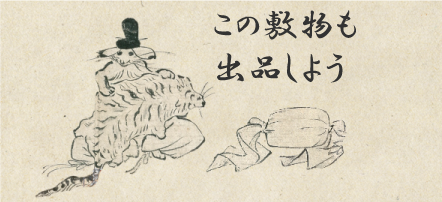 この敷物も
出品しよう